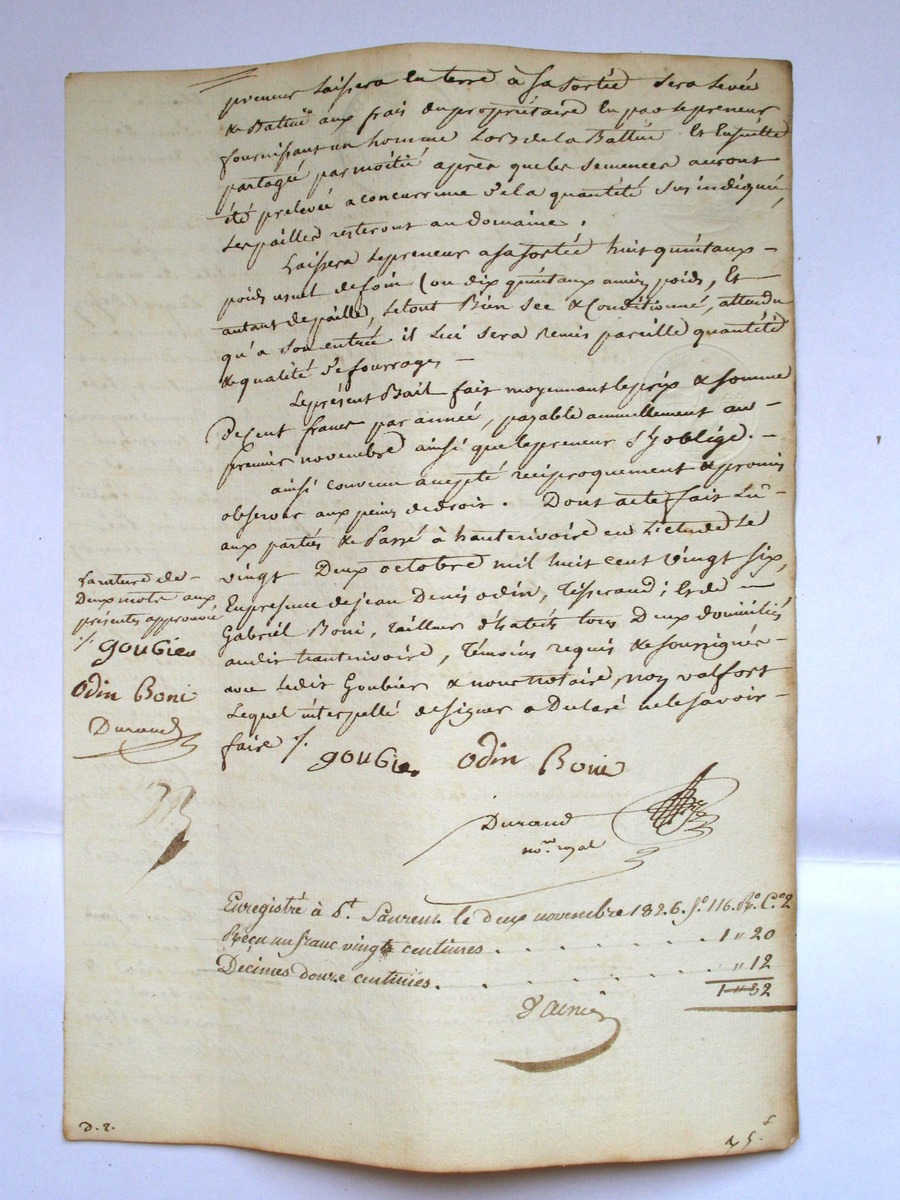 preneur laissera en terre à sa sortie sera levée
& Battue aux frais du propriétaire En par le preneur
fournissant un homme Lors de la Battue Et Ensuitte
partagée par moitié après que les semences auront
été prelevée a concurrence de la quantité sus indiquée,
Les pailles resteront au domaine.
Laissera Le preneur a sa sortie huit quintaux -
poids usuel de foin (ou dix quintaux ancien poids, Et
autant de paille, Le tout Bien sec & Conditionné, attendu
qu'a son entrée il Lui sera remis pareille quantité
& qualité de fourrages -
Le présent Bail fait moyennant le prix & somme
De Cent francs par année, payable annuellement au -
premier novembre ainsi que le preneur s'y oblige. -
ainsi convenu accepté reciproquement & promis
observer aux peines de droit. Dont acte fait Lu -
aux parties & Passé à hauterivoire en L'étude Le
vingt Deux octobre mil huit cent Vingt Six,
En presence de jean Denis odin, Tisserand; Et de -
Gabriel Boni, Tailleur d'habits tous Deux domiciliés
audit hauterivoire, Témoins requis & soussignés -
avec Ledit Goubier & nous notaire, non valfort
Lequel interpellé de signer a Déclaré ne le savoir -
faire ./.
La rature de -
Deux mots aux
présentes approuvée
./. goubier
odin Boni
Durand
goubier odin Boni
Durand
no.re royal
Enregistré à St. Laurent le deux novembre 1826. fo. 116. Ro. C.e 2
Reçu un franc vingt centimes . . . . . . . 1 " 20
Décimes douze centimes . . . . . . . " 12
1 " 32
D. 2.